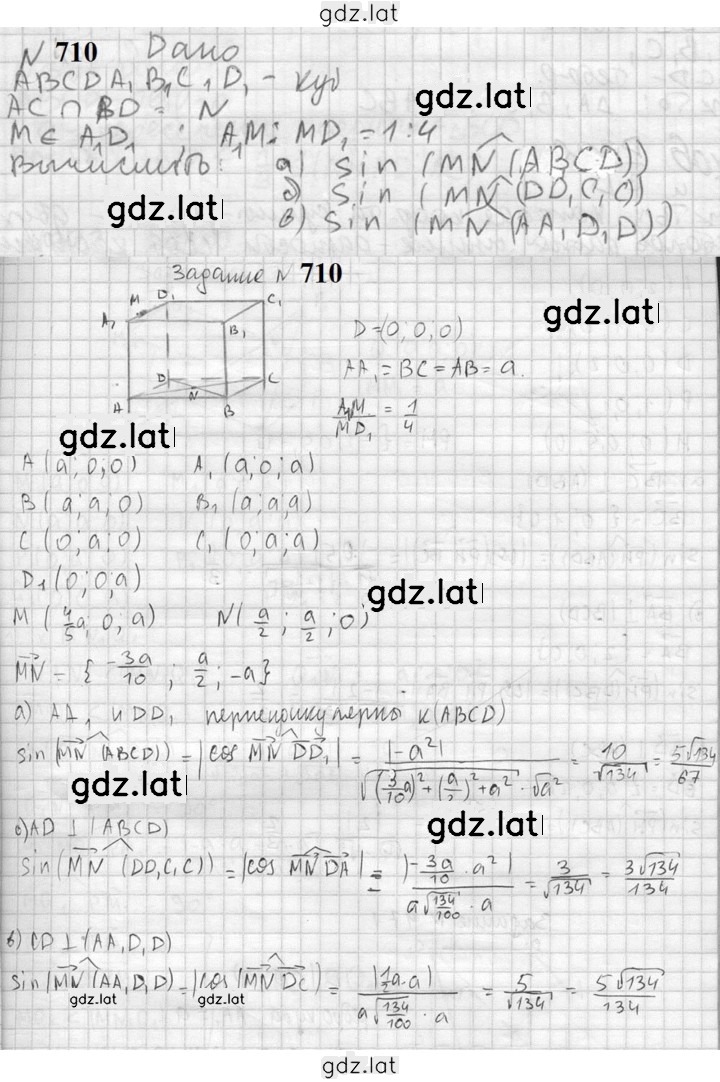 gdz.lat
N 710 Дано
ABCDA₁B₁C₁D₁ - куб
AC ∩ BD = N
gdz.lat
M ∈ A₁D₁ ; A₁M : MD₁ = 1:4
Вычислить: а) sin (MN^(ABCD))
б) sin (MN^(DD₁C₁C))
gdz.lat
в) sin (MN^(AA₁D₁D))
Задание N 710
M D₁ C₁
A₁ B₁
D C
N
A B
gdz.lat
D=(0;0;0)
AA₁ = BC = AB = a.
A₁M/MD₁ = 1/4
gdz.lat
A (a;0;0) A₁ (a;0;a)
B (a;a;0) B₁ (a;a;a)
C (0;a;0) C₁ (0;a;a)
D₁ (0;0;a)
gdz.lat
M (4/5a; 0; a) N (a/2; a/2; 0)
MN = {-3a/10; a/2; -a}
а) AA₁ и DD₁ перпендикулярны к (ABCD)
sin(MN^(ABCD)) = |cos MN^DD₁| = |-a²| / √((3/10a)²+(a/2)²+a²) · √a² = 10/√134 = 5√134/67
gdz.lat
б) AD ⊥ (ABCD)
gdz.lat
sin(MN^(DD₁C₁C)) = |cos MN^DA| = |-3a/10 · a²| / a√134/100 · a = 3/√134 = 3√134/134
в) CD ⊥ (AA₁D₁D)
sin(MN^(AA₁D₁D) = |cos(MN^DC)| = |1/2a·a| / a√134/100 · a = 5/√134 = 5√134/134
gdz.lat gdz.lat gdz.lat
gdz.lat